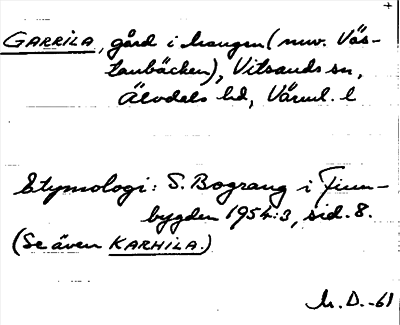 GARRILA, gård i haugen (nuv. Väs-
tanbäcken), Vitsands sn,
Älvdals hd, Värml. l
Etymologi: S. Bograng i Finn-
bygden 1954:3, sid. 8.
(Se även KARHILA.)
M. D. -61